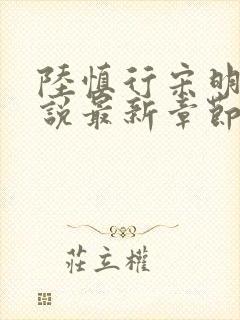 陸慎行宋明
說最新章節
莊立權